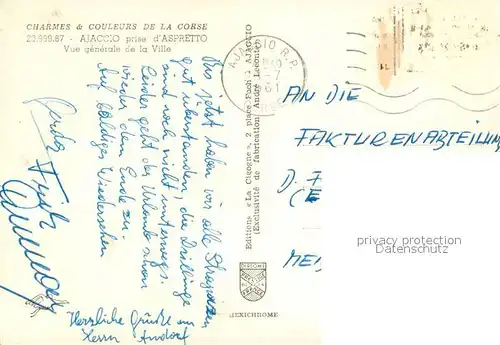 CHARMES & COULEURS DE LA CORSE
23.999.87 - AJACCIO prise d'ASPRETTO
Vue générale de la Ville
Bis jetzt haben wir alle Strapazen
gut überstanden, die Drillinge
sind noch nicht unterwegs.
Leider geht der Urlaub schon
wieder dem Ende zu.
Auf baldiges Wiedersehen
Herzliche Grüße an
Herrn Andorf
Editions «La Cigogne», 2 place Foch - AJACCIO
(Exclusivité de fabrication André Leconte)
MEXICHROME
AJACCIO R.P.
AN DIE
FAKTURENABTEILUNG
privacy protection
Datenschutz